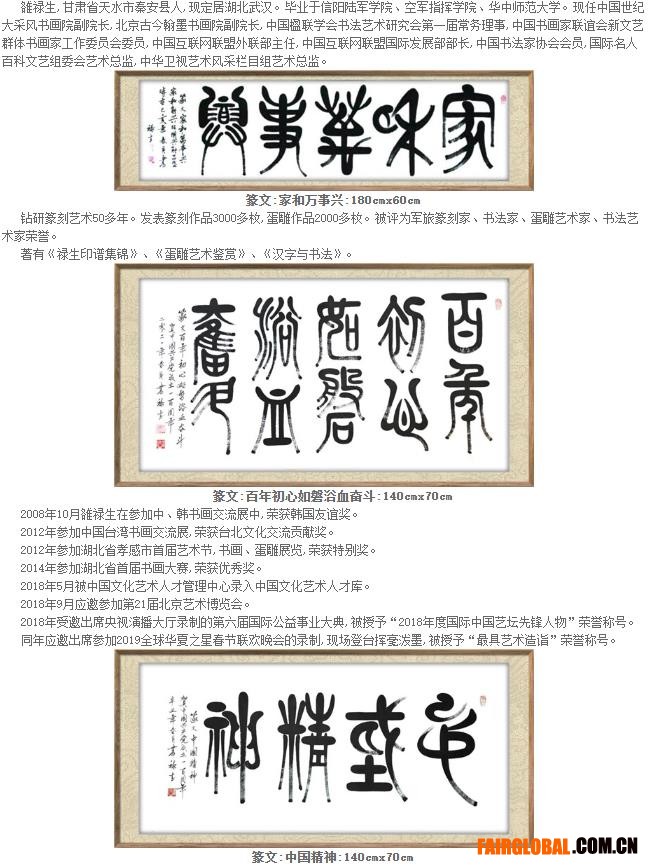 雒禄生,甘肃省天水市秦安县人,现定居湖北武汉。毕业于信阳陆军学院、空军指挥学院、华中师范大学。现任中国世纪
大采风书画院副院长,北京古今翰墨书画院副院长,中国楹联学会书法艺术研究会第一届常务理事,中国书画家联谊会新文艺
群体书画家工作委员会委员,中国互联网联盟外联部主任,中国互联网联盟国际发展部部长,中国书法家协会会员,国际名人
百科文艺组委会艺术总监,中华卫视艺术风采栏目组艺术总监。
家和萬事興
篆文:家和万事兴:180cmx60cm
钻研篆刻艺术50多年。发表篆刻作品3000多枚,蛋雕作品2000多枚。被评为军旅篆刻家、书法家、蛋雕艺术家、书法艺
术家荣誉。
著有《禄生印谱集锦》、《蛋雕艺术鉴赏》、《汉字与书法》。
百年
初心
如磐石
浴血
奮鬥
篆文百年初心如磐浴血奋斗
篆文:百年初心如磐浴血奋斗:140cmx70cm
2008年10月雒禄生在参加中、韩书画交流展中,荣获韩国友谊奖。
2012年参加中国台湾书画交流展,荣获台北文化交流贡献奖。
2012年参加湖北省孝感市首届艺术节,书画、蛋雕展览,荣获特别奖。
2014年参加湖北省首届书画大赛,荣获优秀奖。
2018年5月被中国文化艺术人才管理中心录入中国文化艺术人才库。
2018年9月应邀参加第21届北京艺术博览会。
2018年受邀出席央视演播大厅录制的第六届国际公益事业大典,被授予“2018年度国际中国艺坛先锋人物”荣誉称号。
同年应邀出席参加2019全球华夏之星春节联欢晚会的录制,现场登台挥毫泼墨,被授予“最具艺术造诣”荣誉称号。
中國精神
篆文中國精神
篆文:中国精神:140cmx70cm
FAIRGLOBAL.COM.CN